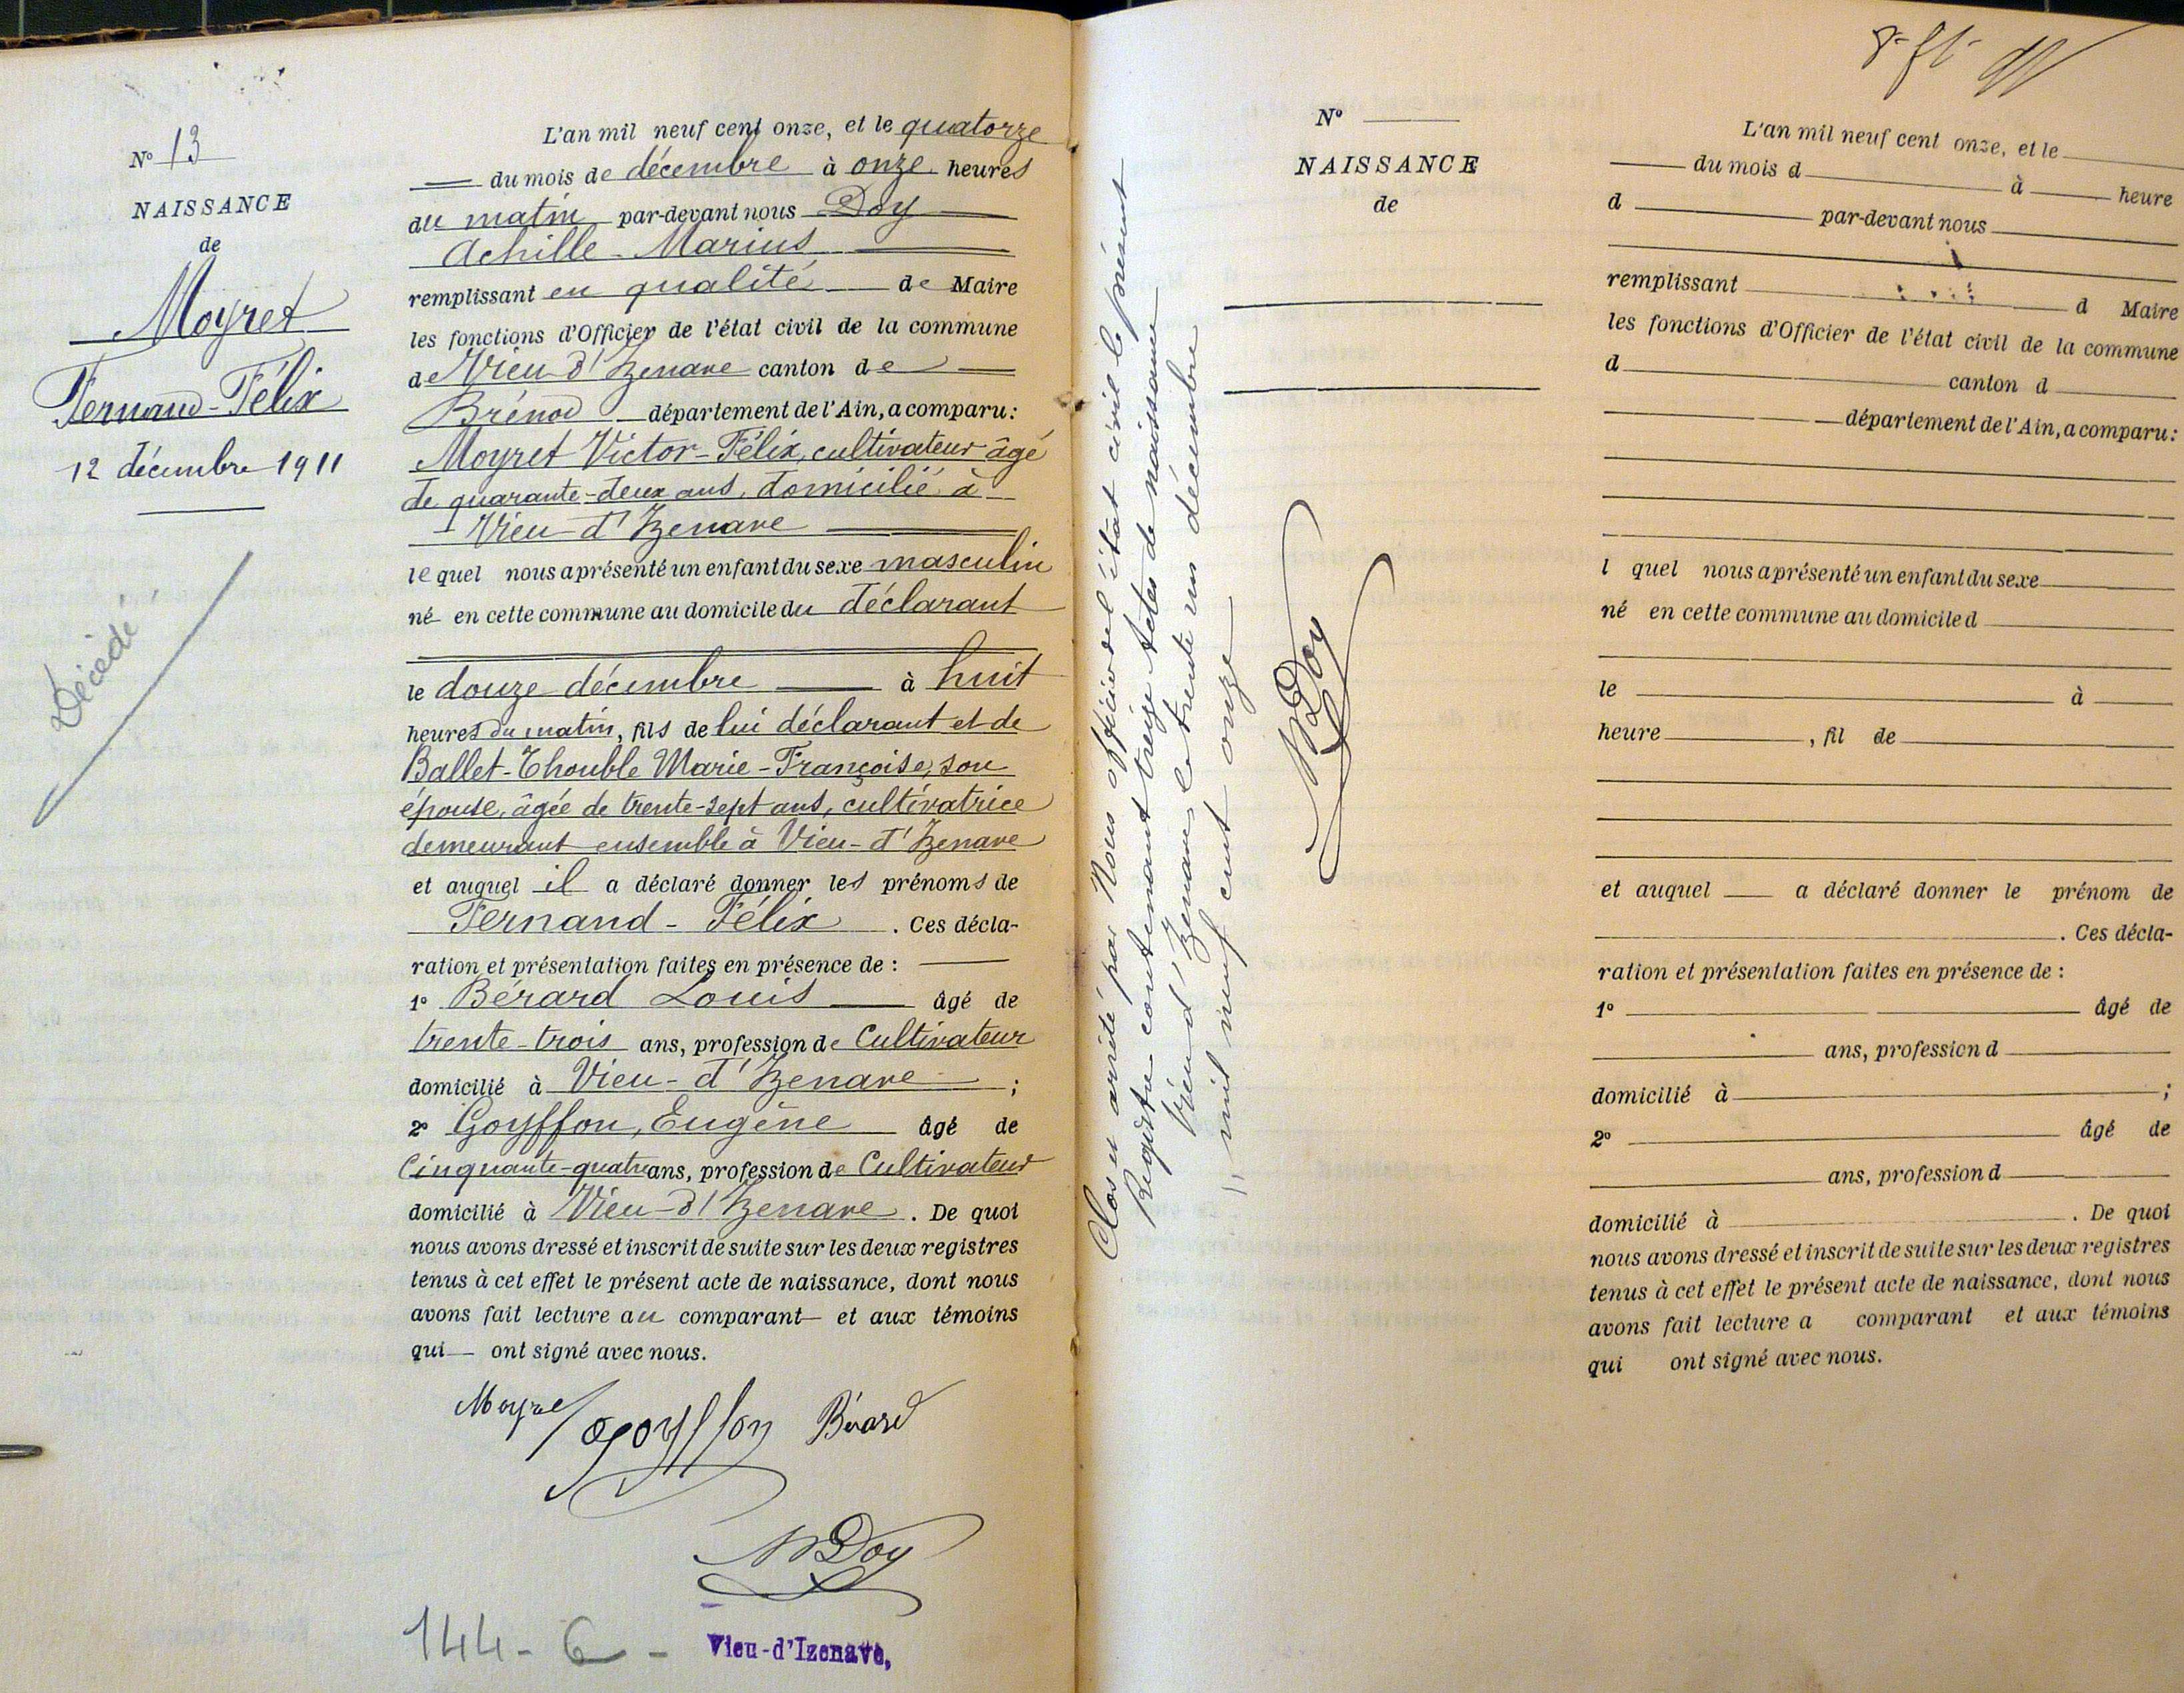 N° 13
NAISSANCE
de
Moyret
Fernand-Félix
12 décembre 1911
Décédé
L'an mil neuf cent onze, et le quatorze
du mois de décembre à onze heures
du matin par-devant nous Doy
Achille-Marius
remplissant en qualité de Maire
les fonctions d'Officier de l'état civil de la commune
de Vieu-d'Izenave canton de
Brénod département de l'Ain, a comparu:
Moyret Victor-Félix, cultivateur âgé
de quarante-deux ans, domicilié à
Vieu-d'Izenave
lequel nous a présenté un enfant du sexe masculin
né en cette commune au domicile du déclarant
le douze décembre à huit
heures du matin, fils de lui déclarant et de
Ballet-Thouble Marie-Françoise, son
épouse, âgée de trente-sept ans, cultivatrice
demeurant ensemble à Vieu-d'Izenave
et auquel il a déclaré donner les prénoms de
Fernand-Félix. Ces décla-
ration et présentation faites en présence de :
1° Bérard Louis âgé de
trente-trois ans, profession de Cultivateur
domicilié à Vieu-d'Izenave ;
2° Goyffon, Eugène âgé de
Cinquante-quatre ans, profession de Cultivateur
domicilié à Vieu-d'Izenave. De quoi
nous avons dressé et inscrit de suite sur les deux registres
tenus à cet effet le présent acte de naissance, dont nous
avons fait lecture au comparant et aux témoins
qui ont signé avec nous.
Moyret Goyffon Bérard
Doy
144-6-
Vieu-d'Izenave,
Clos et arrêté par Nous officier de l'état civil le présent
Registre contenant treize Actes de naissance
Vieu d'Izenave, le trente un décembre
mil neuf cent onze
Doy
N°
NAISSANCE
de
L'an mil neuf cent onze, et le
du mois d à heure
d par-devant nous
remplissant d Maire
les fonctions d'Officier de l'état civil de la commune
d canton d
département de l'Ain, a comparu:
l quel nous a présenté un enfant du sexe
né en cette commune au domicile d
le à
heure , fil de
et auquel a déclaré donner le prénom de
. Ces décla-
ration et présentation faites en présence de :
1° âgé de
ans, profession d
domicilié à ;
2° âgé de
ans, profession d
domicilié à . De quoi
nous avons dressé et inscrit de suite sur les deux registres
tenus à cet effet le présent acte de naissance, dont nous
avons fait lecture a comparant et aux témoins
qui ont signé avec nous.